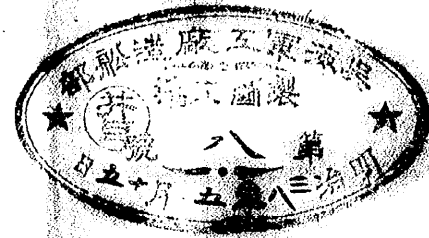 呉海軍工廠造船部
製圖工場
第八號
明治三八年五月十五日